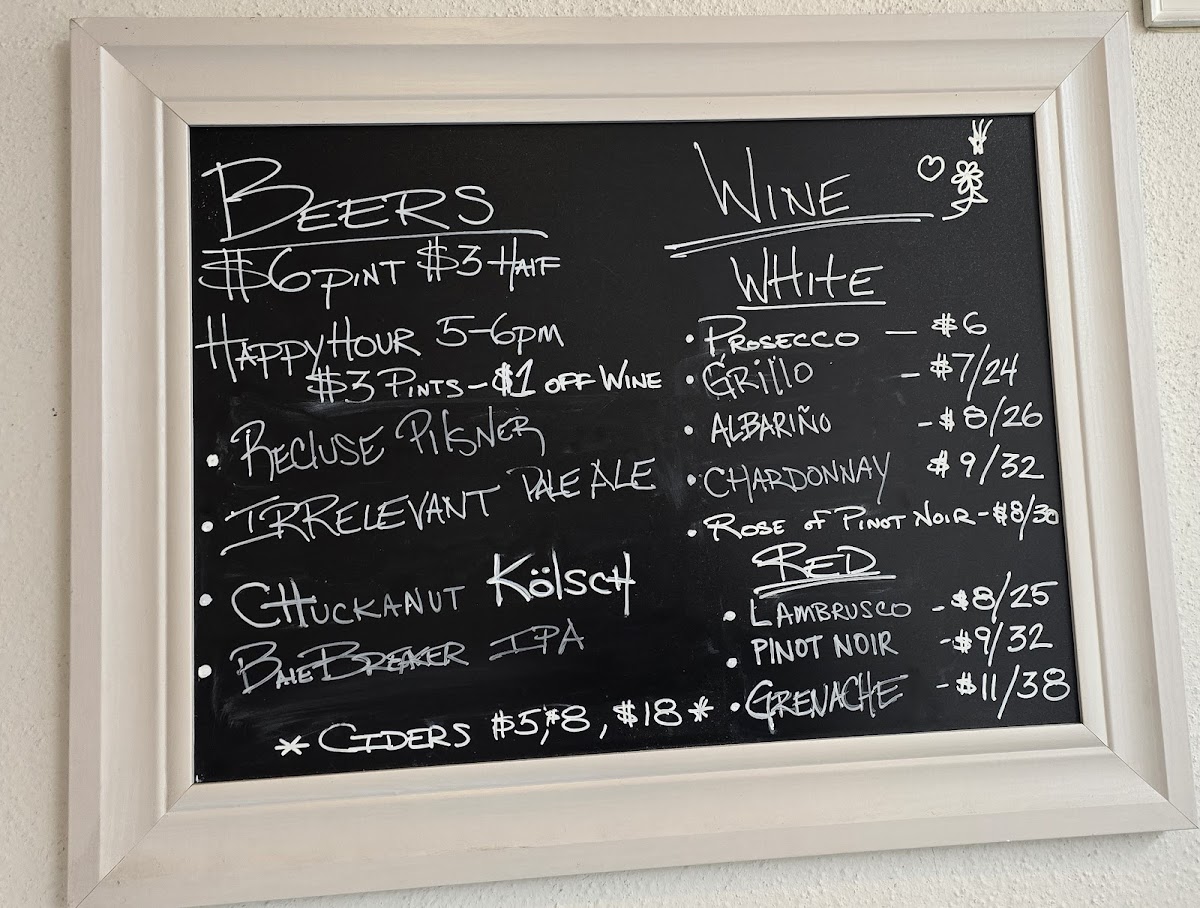 BEERS
$6 PINT $3 HALF
HAPPY HOUR 5-6PM
$3 PINTS - $1 OFF WINE
• RECLUSE PILSNER
• IRRELEVANT PALE ALE
• CHUCKANUT KÖLSCH
• BALE BREAKER IPA
* CIDERS $5, $8, $18 *
WINE
WHITE
• PROSECCO - $6
• GRILLO - $7/24
• ALBARIÑO - $8/26
• CHARDONNAY $9/32
• ROSE OF PINOT NOIR - $8/30
RED
• LAMBRUSCO - $8/25
• PINOT NOIR - $9/32
• GRENACHE - $11/38